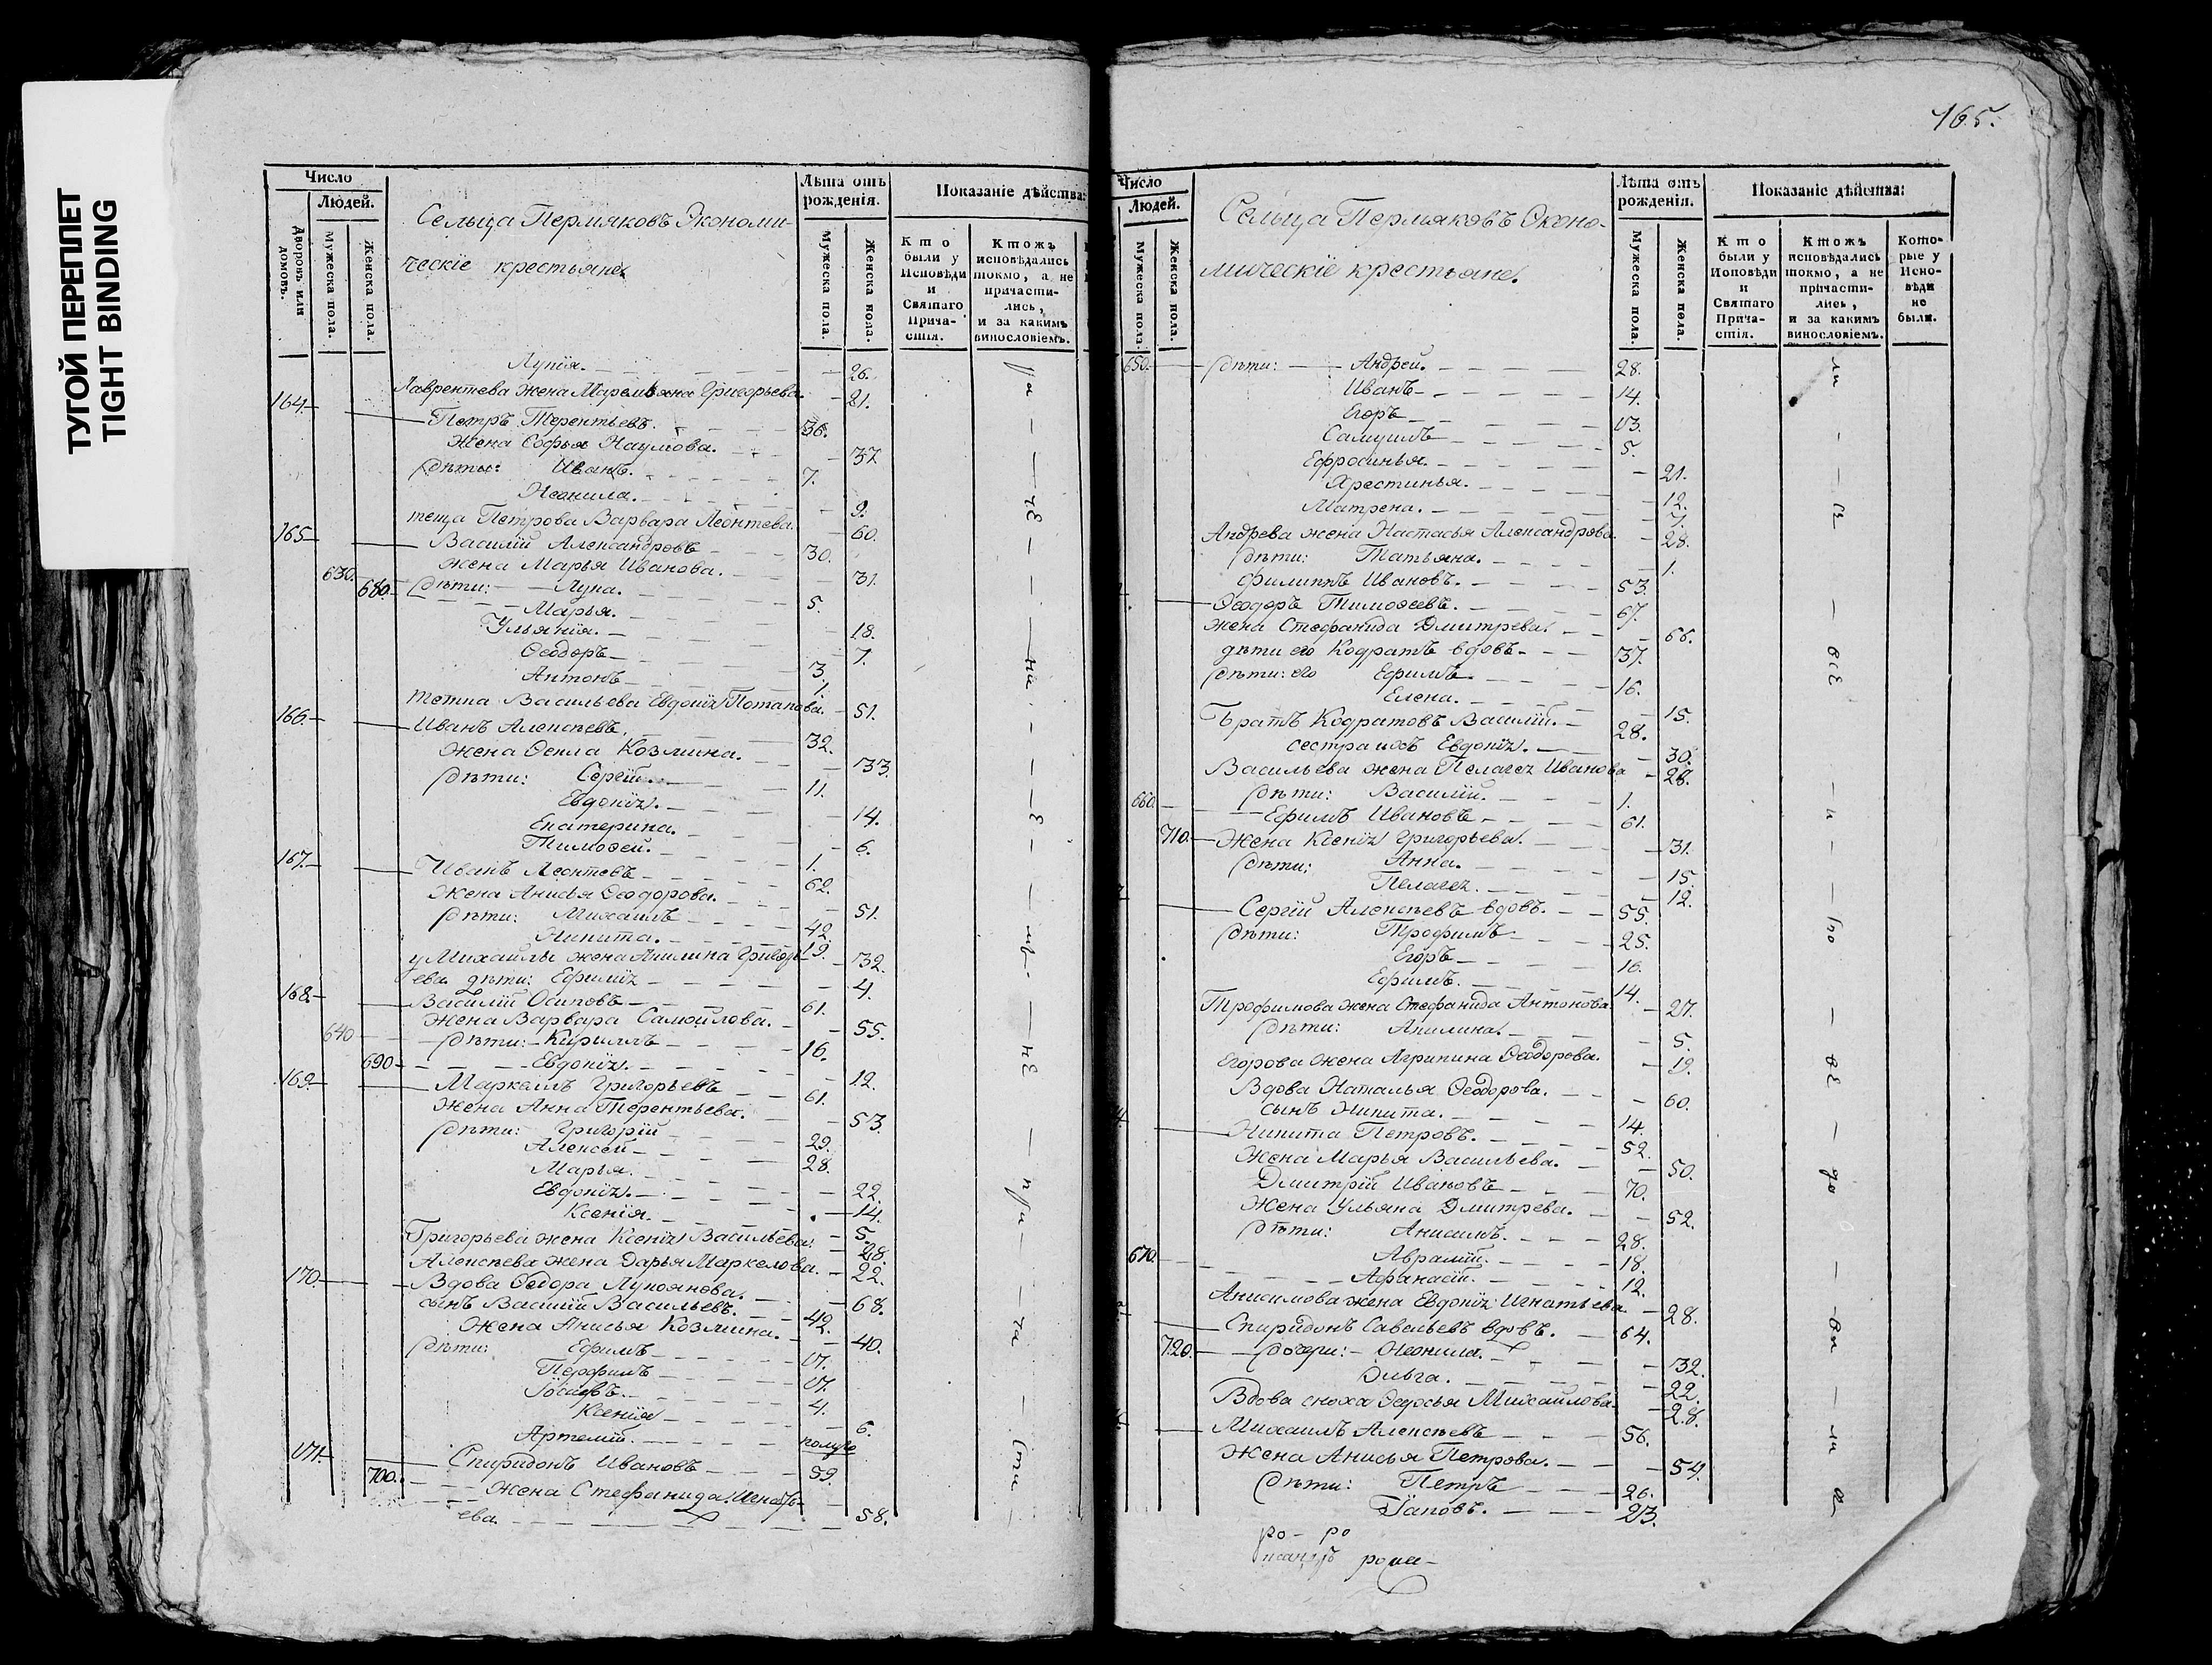 ТУГОЙ ПЕРЕПЛЕТ
TIGHT BINDING
Число
Людей.
Дворовъ или домовъ.
Мужеска пола.
Женска пола.
Сельца Пермяковъ Экономи-
ческіе крестьяне.
Лѣта отъ рожденія.
Мужеска пола.
Женска пола.
Показаніе дѣйства:
Кто были у Исповѣди и Святаго Прича-стія.
Ктожъ исповѣдались токмо, а не причасти-лись, и за какимъ винословіемъ.
Лукія. 26.
Лаврентева жена Маремьяна Григорьева 21.
164. Петръ Терентьевъ. 36.
жена Софья Наумова. 37
дѣти: Иванъ. 7.
Неонила. 9.
теща Петрова Варвара Леонтева. 60.
165 Василій Александровъ 30.
жена Марья Иванова. 31.
630. 680. дѣти: Лука. 5.
Марья. 18.
Ульянія. 7.
Ѳеодоръ 3.
Антонъ 1.
тетка Васильева Евдокія Потапова. 51.
166. Иванъ Алексѣевъ. 32.
жена Ѳекла Козмина. 33.
дѣти: Сергій. 11.
Евдокія. 14.
Екатерина. 6.
Тимоѳей. 1.
167. Иванъ Леонтевъ 62.
жена Анисья Ѳеодорова. 51.
дѣти: Михаилъ 42.
Никита. 19.
у Михайлы жена Акилина Григорь- 32.
ева дѣти: Ефимія 4.
168. Василій Осиповъ 61.
жена Варвара Самойлова. 55.
640 дѣти: Кириллъ 16.
690 Евдокія. 12.
169. Маркеллъ Григорьевъ 61.
жена Анна Терентьева. 53.
дѣти: Григорій 29.
Алексей 28.
Марья. 22.
Евдокія. 14.
Ксенія. 5.
Григорьева жена Ксенія Васильева. 28.
Алексѣева жена Дарья Маркелова. 22.
170. Вдова Ѳедора Лукоянова. 68.
сынъ Василій Васильевъ. 42.
Жена Анисья Козмина. 40.
дѣти: Ефимъ 17.
Перфилъ 17.
Іосифъ. 4.
Ксенія 6.
Артемій.
171. Спиридонъ Ивановъ 59.
700. Жена Стефанида Игнать-
ева 58.
165.
Число
Людей.
Мужеска пола.
Женска пола.
Сельца Пермяковъ Эконо-
мическіе крестьяне.
Лѣта отъ рожденія.
Мужеска пола.
Женска пола.
Показаніе дѣйства:
Кто были у Исповѣди и Святаго Прича-стія.
Ктожъ исповѣдались токмо, а не причасти-лись, и за какимъ винословіемъ.
Кото-рые у Испо-вѣди не были.
650. дѣти: Андрей. 28.
Иванъ 14.
Егоръ 13.
Самуилъ 5.
Ефросинья. 21.
Христинья. 12.
Матрена. 7.
Андрева жена Настасья Александрова. 28.
дѣти: Татьяна. 1.
Филиппъ Ивановъ. 53.
Ѳеодоръ Тимоѳеевъ. 67.
жена Стефанида Дмитрева. 66.
дѣти его Кодратъ вдовъ 37.
дѣти: его Ефимъ 16.
Елена. 15.
Братъ Кодратовъ Василій. 28.
сестра ихъ Евдокія. 30.
Васильева жена Пелагея Иванова 28.
дѣти: Василій. 1.
660. Ефимъ Ивановъ 61.
710. Жена Ксенія Григорьева. 31.
дѣти: Анна. 15.
Пелагея. 12.
Сергій Алексѣевъ вдовъ. 55.
дѣти: Трофимъ 25.
Егоръ 16.
Ефимъ. 14.
Трофимова жена Стефанида Антонова 27.
дѣти: Акилина. 5.
Егорова жена Агрипина Ѳеодорова. 19.
Вдова Наталья Ѳеодорова. 60.
сынъ Никита. 14.
Никита Петровъ. 52.
Жена Марья Васильева. 50.
Дмитрій Ивановъ 70.
Жена Ульяна Дмитрева. 52.
дѣти: Анисимъ. 28.
670. Аврамій. 18.
Афанасій. 12.
Анисимова жена Евдокія Игнатьева 28.
Спиридонъ Савельевъ вдовъ. 64.
720. дочери: Неонила. 32.
Ольга. 22.
Вдова сноха Ѳедосья Михайлова. 28.
Михаилъ Алексѣевъ 56.
Жена Анисья Петрова. 54.
дѣти: Петръ 26.
Іаковъ. 23.